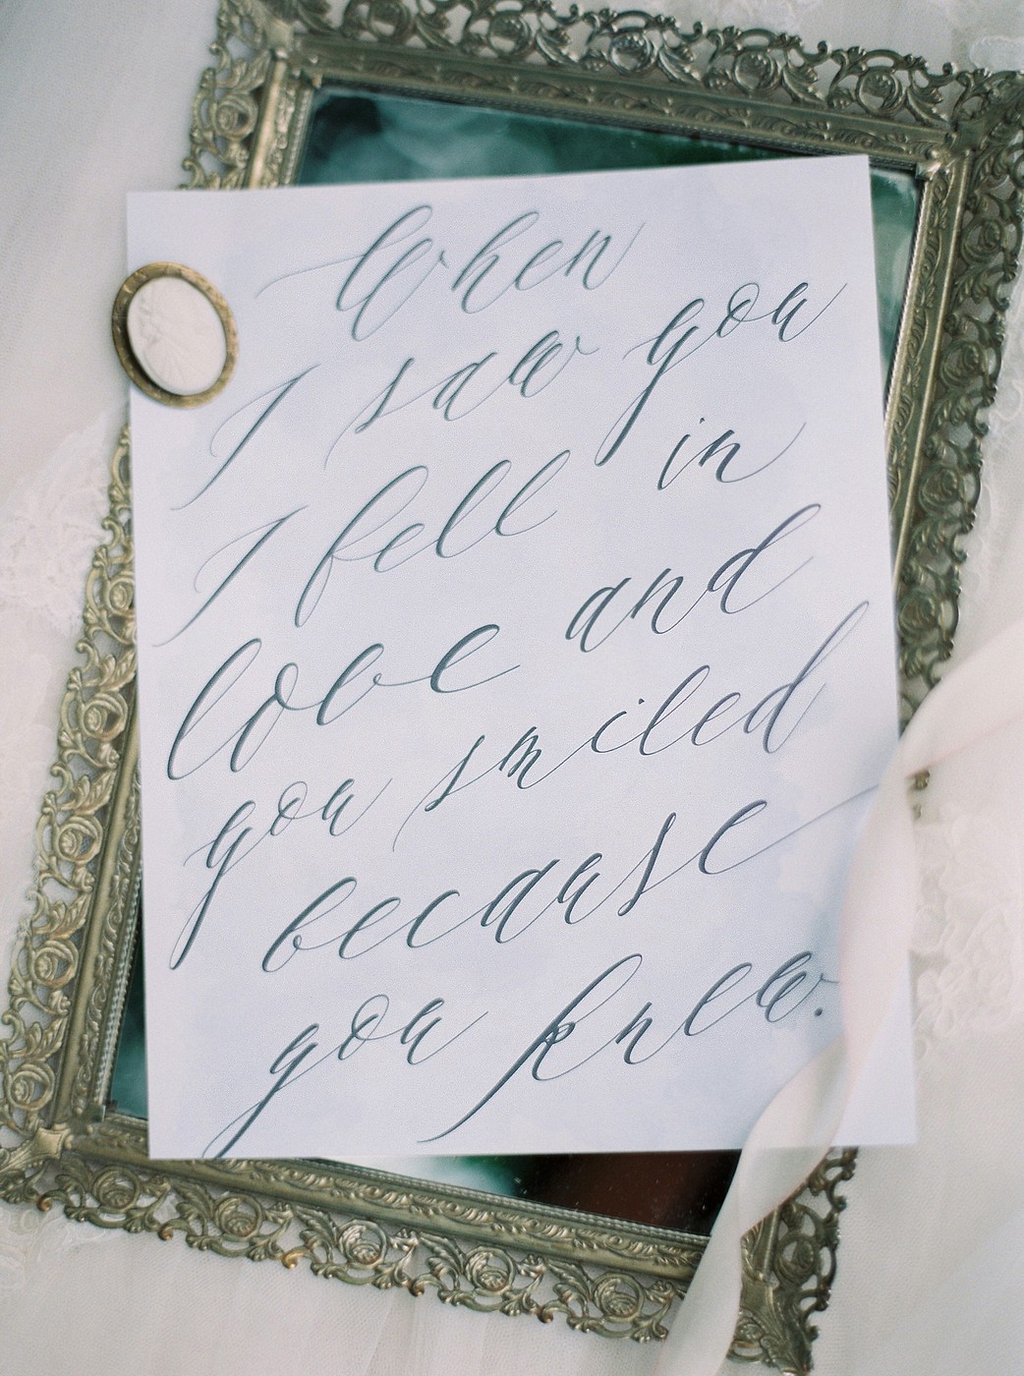 When
I saw you
I fell in
love and
you smiled
because
you knew.